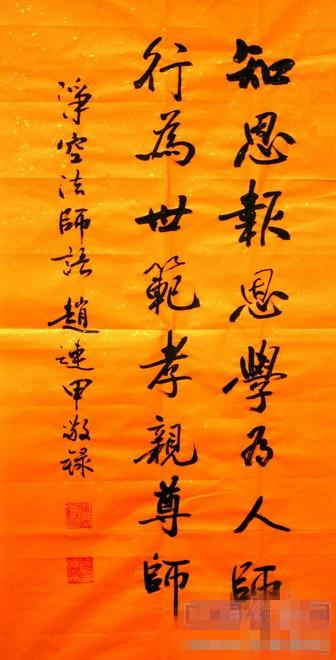 知恩報恩學為人師
行為世範孝親尊師
淨空法師語 趙連甲敬錄